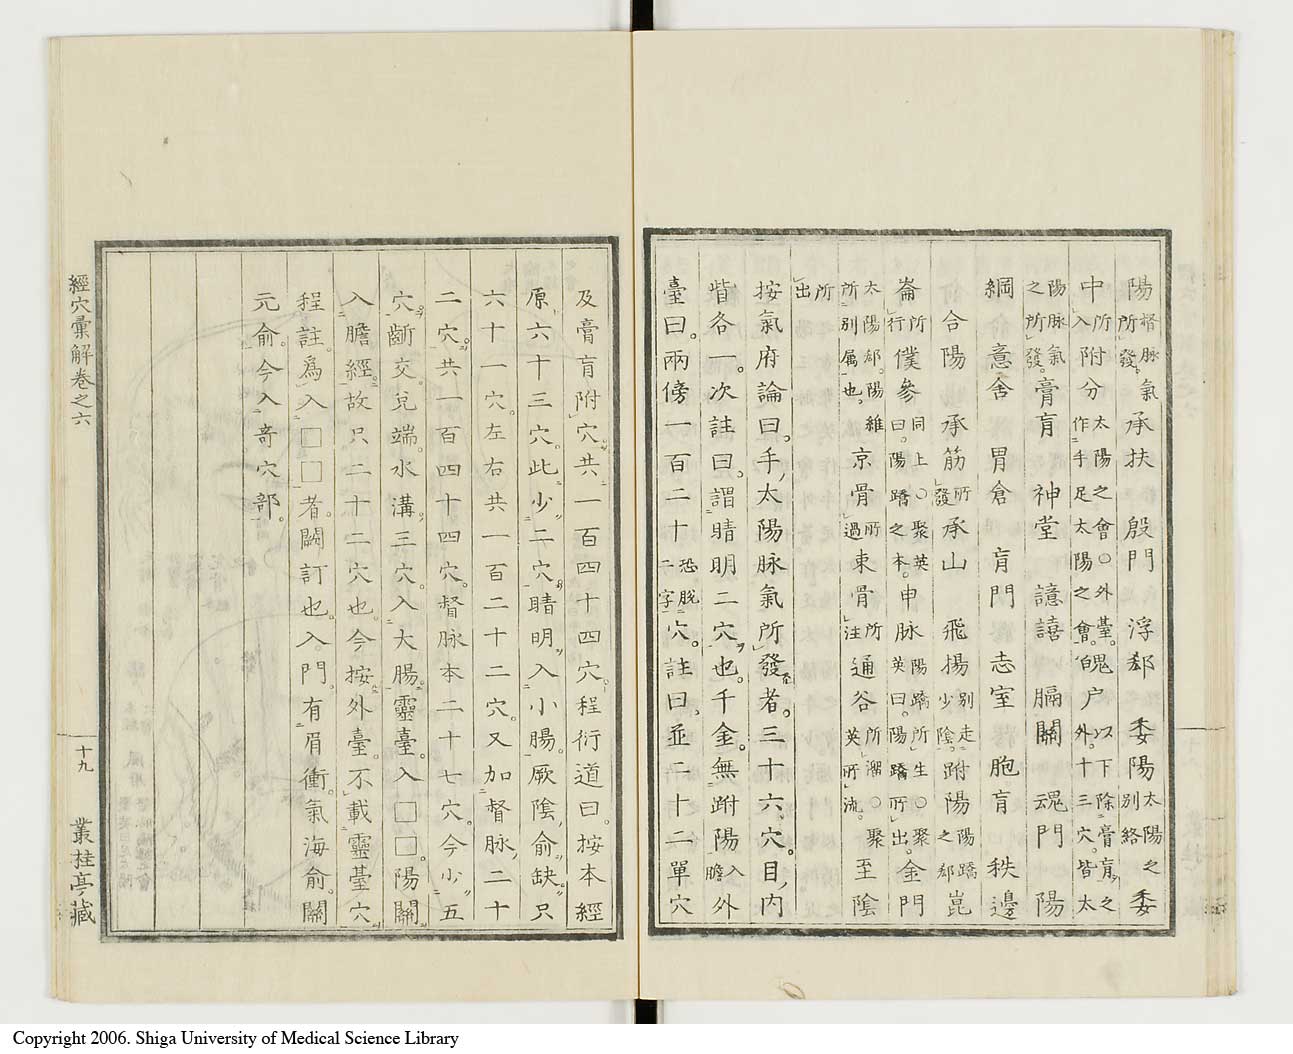 陽督脉氣所發。承扶 殷門 浮郄 委陽太陽之別絡委
中所入附分太陽之會○外臺。作手足太陽之會。魄户以下除膏肓之外。十三穴。皆太
陽脉氣之所發。膏肓 神堂 譩譆 膈關 魂門 陽
綱 意舍 胃倉 肓門 志室 胞肓 秩邊
合陽 承筋所發承山 飛揚別走少陰。跗陽陽蹻之郄崑
崙所行僕參同上○聚英曰。陽蹻之本。申脉陽蹻所生○聚英曰。陽蹻所出。金門
太陽郄。陽維所別属也。京骨所過束骨所注通谷所溜○聚英所流。至陰
所出
按氣府論曰。手太陽脉氣所發者。三十六穴。目内
眥各一。次註曰。謂睛明二穴也。千金。無跗陽入膽外
臺曰。兩傍一百二十恐脱二字穴。註曰並二十二單穴
及膏肓附穴。共一百四十四穴。程衍道曰。按本經
原六十三穴。此少二穴。睛明入小腸。厥陰俞缺。只
六十一穴。左右共一百二十二穴。又加督脉二十
二穴。共一百四十四穴。督脉本二十七穴。今少五
穴。齗交。兌端。水溝。三穴。入大腸。靈臺。入□□。陽關。
入膽經。故只二十二穴也。今按外臺。不載靈臺穴
程註。爲入□□者。闕訂也。入門。有眉衝。氣海俞。關
元俞。今入奇穴部。
經穴彙解卷之六
十九
叢桂亭藏
Copyright 2006. Shiga University of Medical Science Library